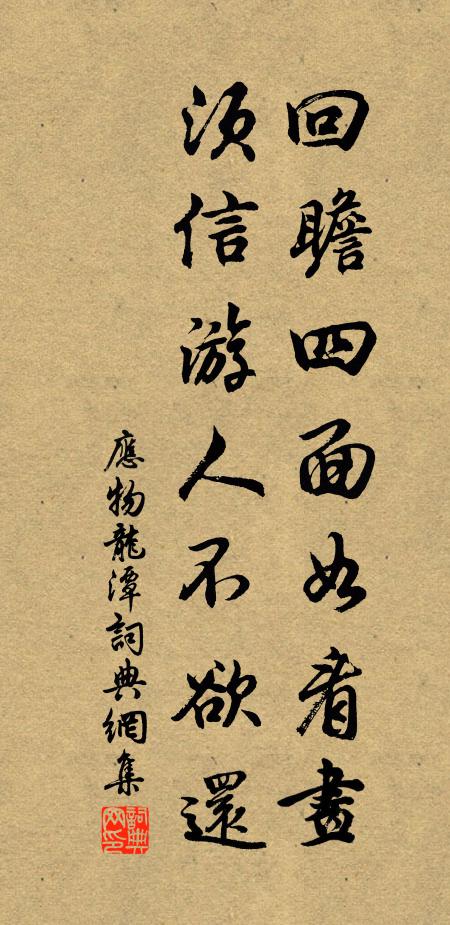 回瞻四面如看畫
須信游人不欲還
應物龍潭詞典網集
詞典網印